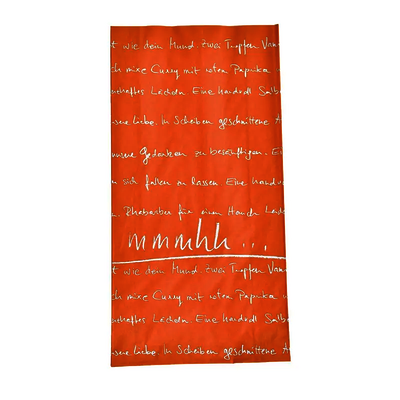 t wie dein Mund. Zwei Tropfen Van
ch mixe Curry mit roten Paprika
nhaftes Lächeln Eine Handvoll Salb
nsere Liebe. In Scheiben geschnittene A
unsere Gedanken zu besänftigen. Ei
n sich fallen zu lassen Eine handv
n. Rhabarber für einen Hauch Leid
mmmhh...
t wie dein Mund. Zwei Tropfen Van
ch mixe Curry mit roten Paprika
nhaftes Lächeln Eine Handvoll Salb
nsere Liebe. In Scheiben geschnittene A